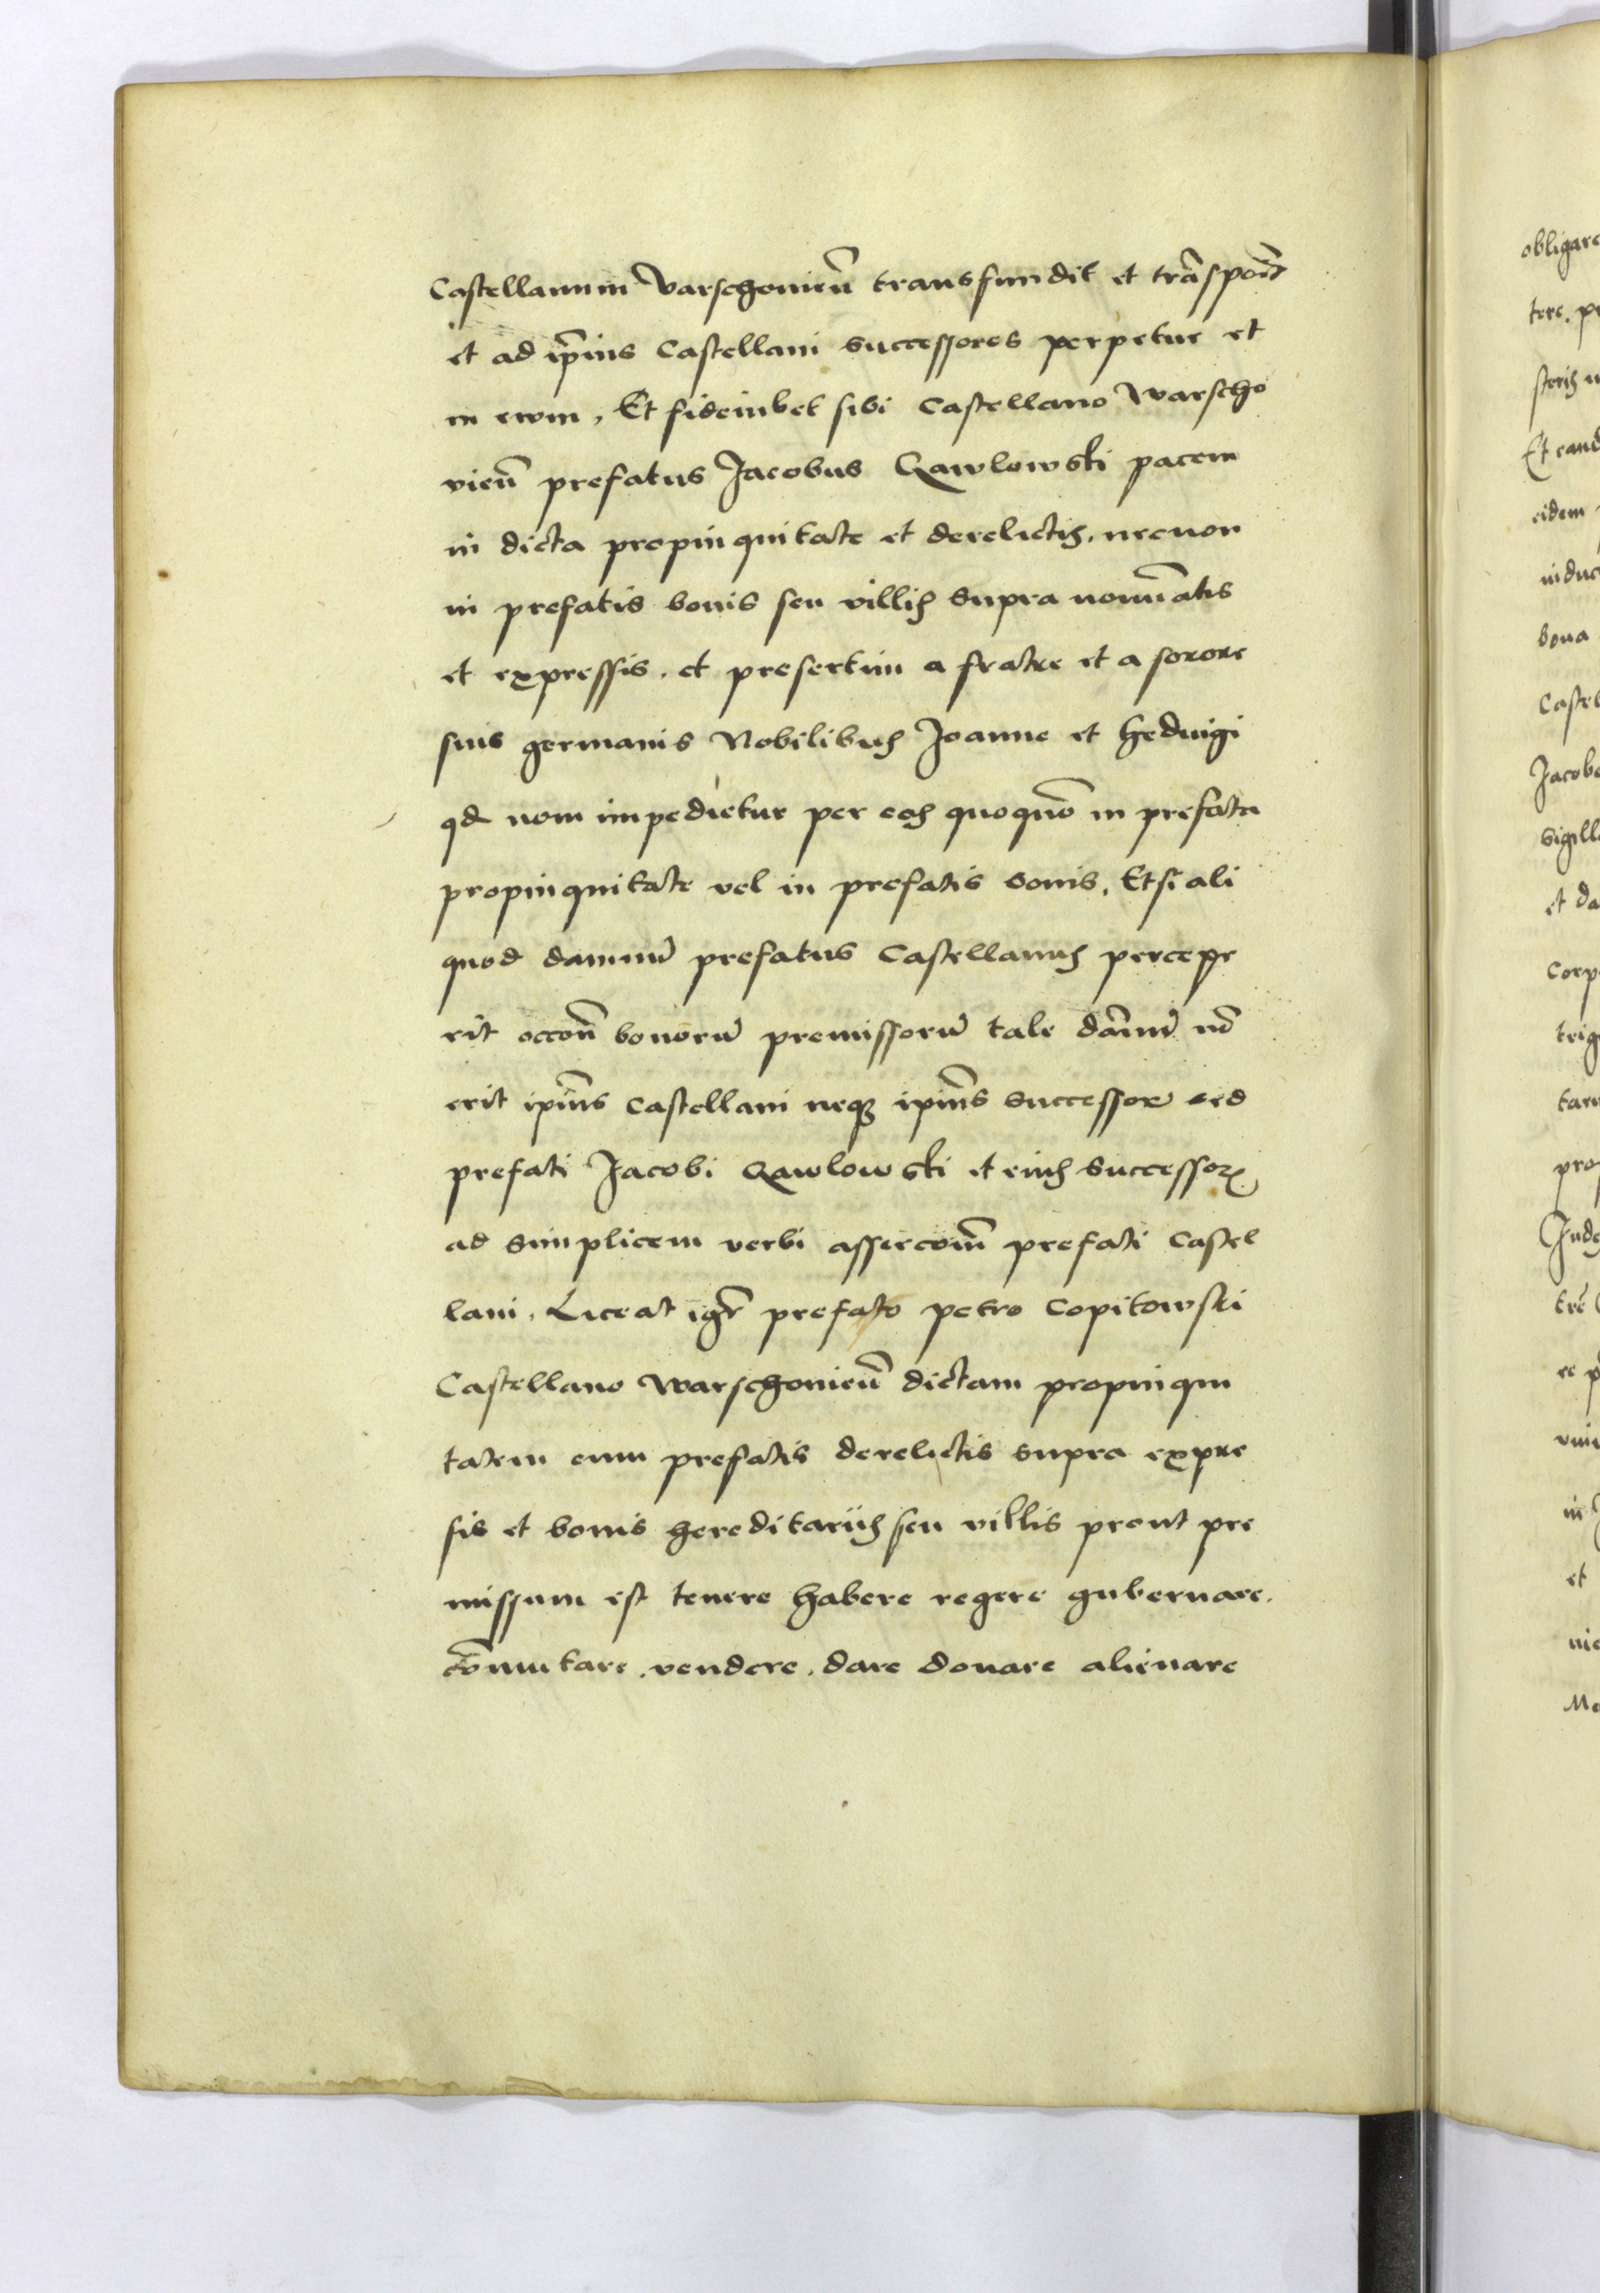 Castellanum Varschovieñ transfundit et trãsponit
et ad ip̃ius Castellani successores perpetue et
in evum, Et fideiubet sibi Castellano Warscho
vieñ prefatus Jacobus Gawlowski pacem
in dicta propinquitate et derelictis. necnon
in prefatis bonis seu villis supra nomiãtis
et expressis. et presertim a fratre et a sorore
suis germanis Nobilibus Joanne et Hedvigi
qd non impedietur per eos quoquõ in prefata
propinquitate vel in prefatis bonis, Et si ali
quod damnũ prefatus Castellanus percepe
rit occõñ bonorũ premissorũ tale dãnũ nõ
erit ip̃ius Castellani neqꝫ ip̃ius successorũ sed
prefati Jacobi Gawlowski et eius Successorꝝ
ad simplicem verbi assercõñ prefati Castel
lani, Liceat igr̃ prefato petro Copitowski
Castellano Warschovieñ dictam propinqui
tatem cum prefatis derelictis supra expre
sis et bonis hereditariis seu villis prout pre
missum est tenere habere regere gubernare.
cõmutare, vendere, dare donare alienare
obligare
bona
et da
et